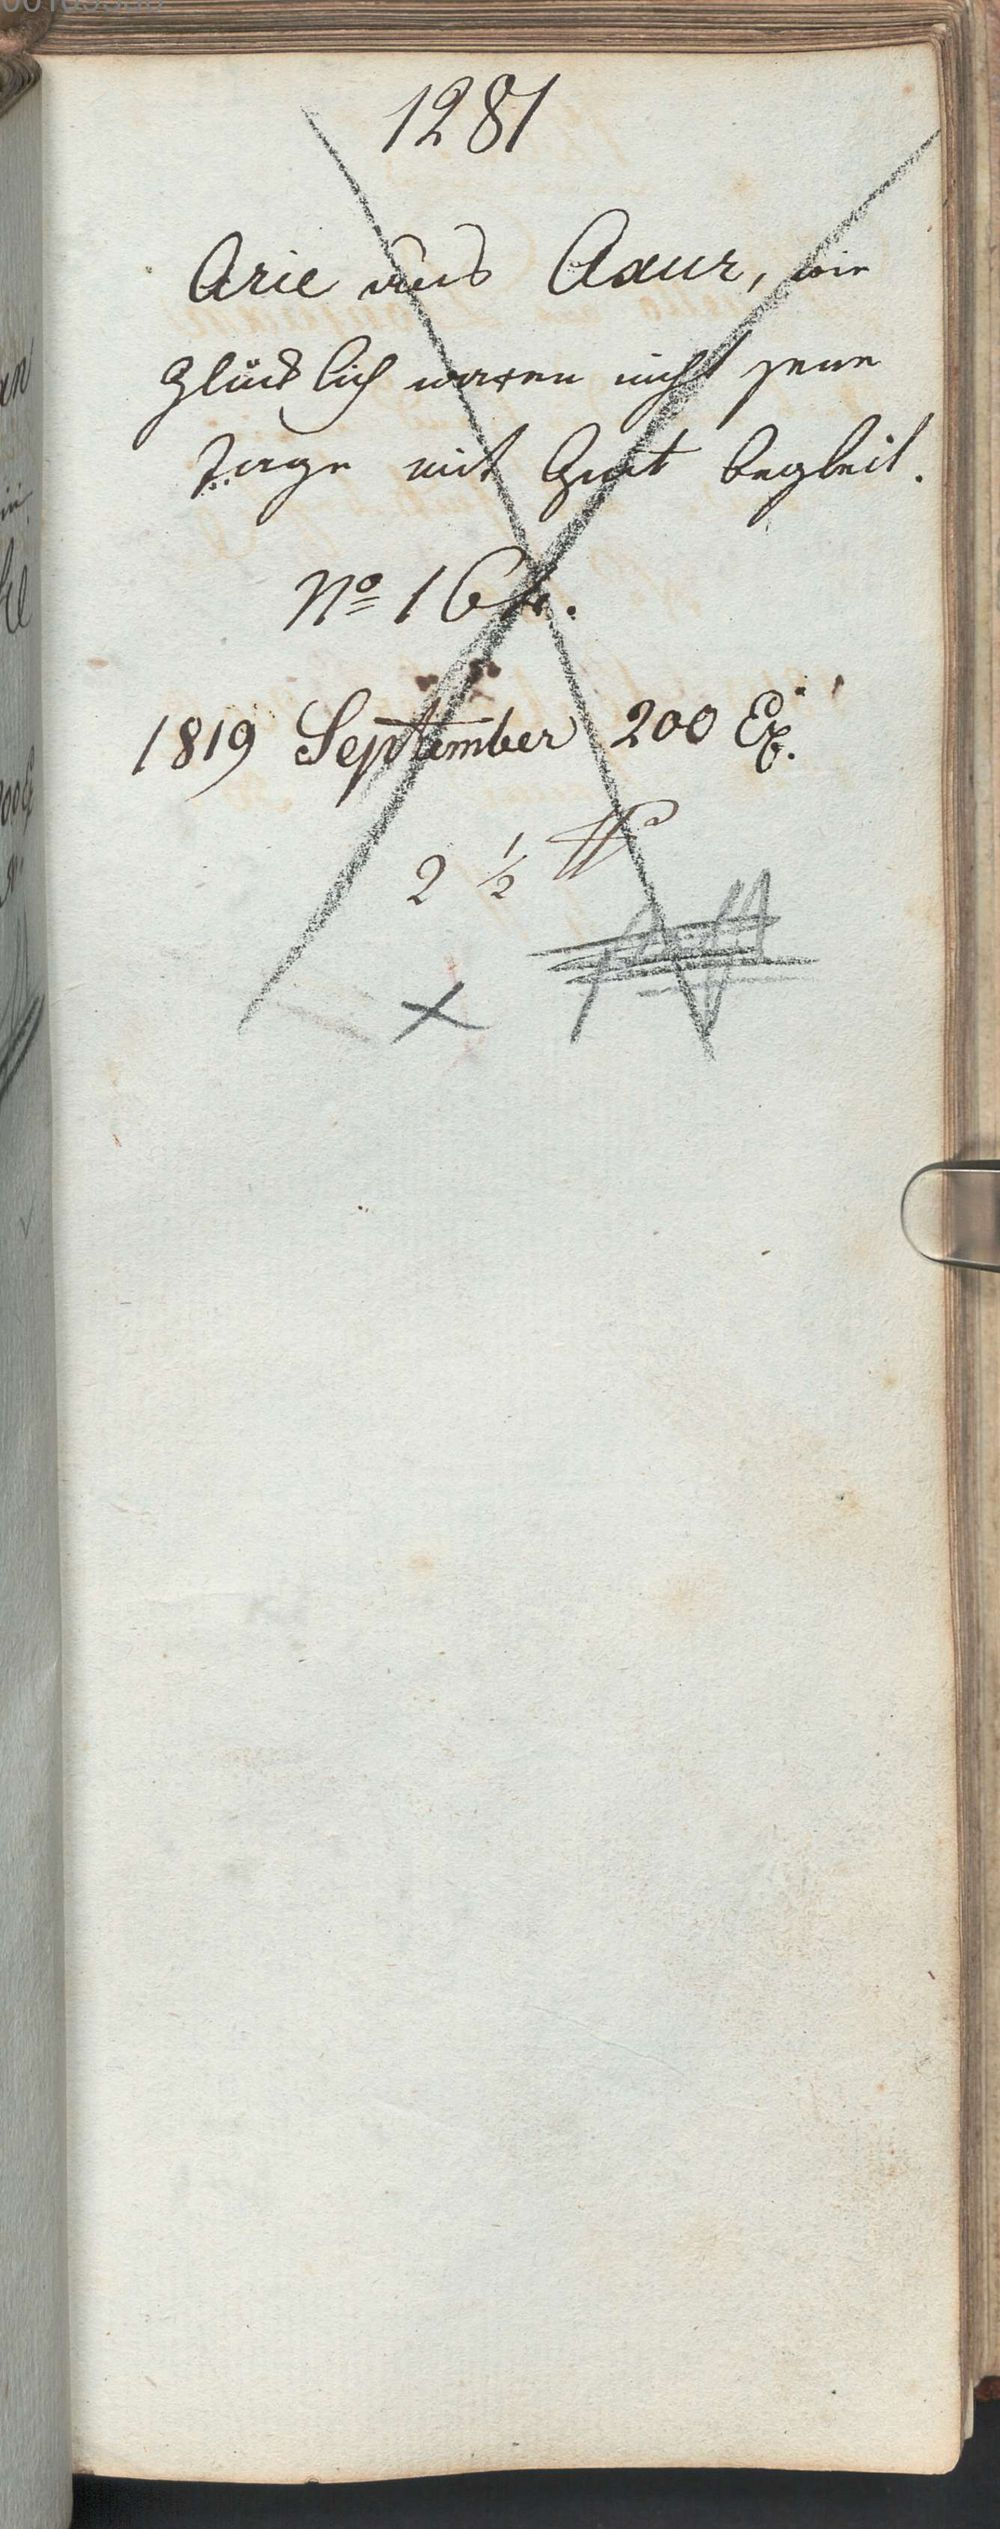 1281
Arie aus Axur, wie
glücklich waren nicht jene
Tage mit Guit begleit.
No 16
1819 September 200 Ex.
2 1/2